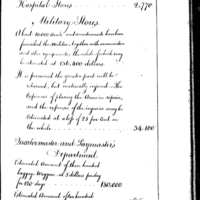 Hospital Stores 2,770
Military Stores.
About 10,000 and accoutrements have been
furnished the militia, together with ammunition
and other equipments, the whole of which may
be estimated at 136,400 dollars
It is presumed the greater part will be
returned, but materially injured. The
Expences of placing the Arms in repair,
and the expence of the injuries may be
Estimated at a loss of 25 per Cent on
the whole 34,100
Quartermaster and Paymaster's
Department.
Estimated Amount of three hundred
baggage Waggons at 5 dollars per day
for 120 days 180,000
Estimated Amount of two hundred